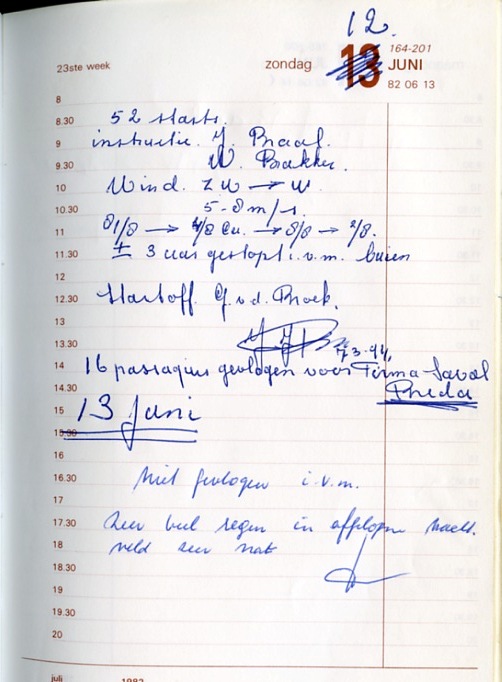 12.
23ste week zondag 13 164-201 JUNI 82 06 13
8
8.30 52 starts.
9 instructie. J. Braaf.
9.30 W. Bakker.
10 Wind. ZW → W.
10.30 5-8 m/s.
11 81/8 → 4/8 Cu. → 8/8 → 7/8.
11.30 ± 3 uur gestopt i.v.m. buien
12
12.30 Startoff. G. v.d. Broek.
13
13.30 73-94.
14 16 passagiers gevlogen voor Firma Laval
14.30 Breda
15 13 Juni
15.30
16
16.30 Niet gevlogen i.v.m.
17
17.30 Zeer veel regen in afgelopen nacht.
18 veld zeer nat
18.30
19
19.30
20
juli 1982